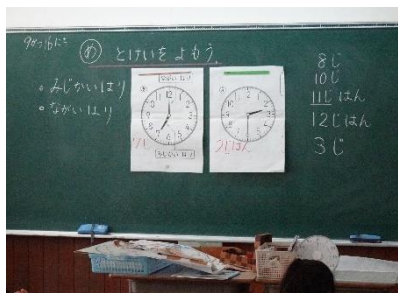 9がつ16にち
め とけいをよもう。
・みじかいはり
・ながいはり
ながいはり
7じ
みじかいはり
2じはん
8じ
10じ
11じはん
12じはん
3じ